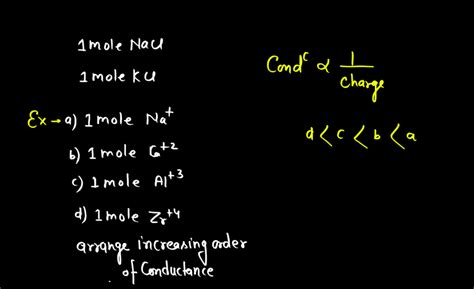 1 mole NaCl
1 mole KCl
Ex → a) 1 mole Na⁺
b) 1 mole Ca⁺²
c) 1 mole Al⁺³
d) 1 mole Zr⁺⁴
arrange increasing order
of Conductance
Condᶜ ∝ 1/charge
d < c < b < a